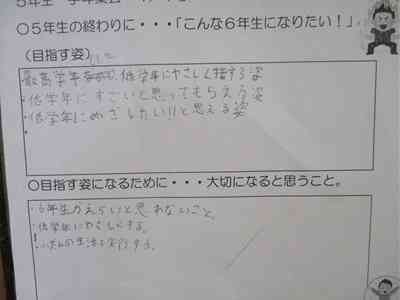 ○5年生の終わりに・・・「こんな6年生になりたい！」
(目指す姿)
最高学年 低学年にやさしく接する姿
・低学年にすごいと思ってもらえる姿
・低学年にめざしたい!!と思える姿
○目指す姿になるために・・・大切になると思うこと。
・6年生がえらいと思わないこと。
・低学年にやさしくする。
の生活を実行する。